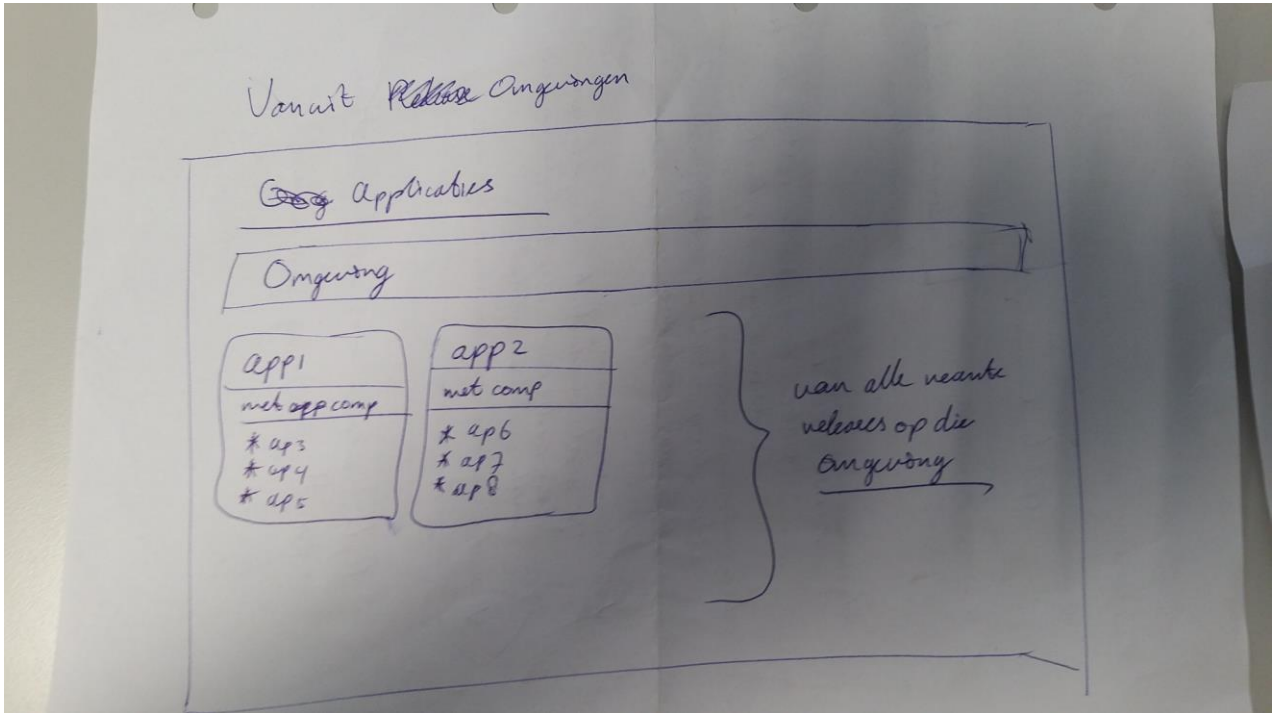 Vanuit Omgevingen
Applicaties
Omgeving
app1
met app comp
* ap3
* ap4
* ap5
app2
met comp
* ap6
* ap7
* ap8
van alle recente
releases op die
omgeving